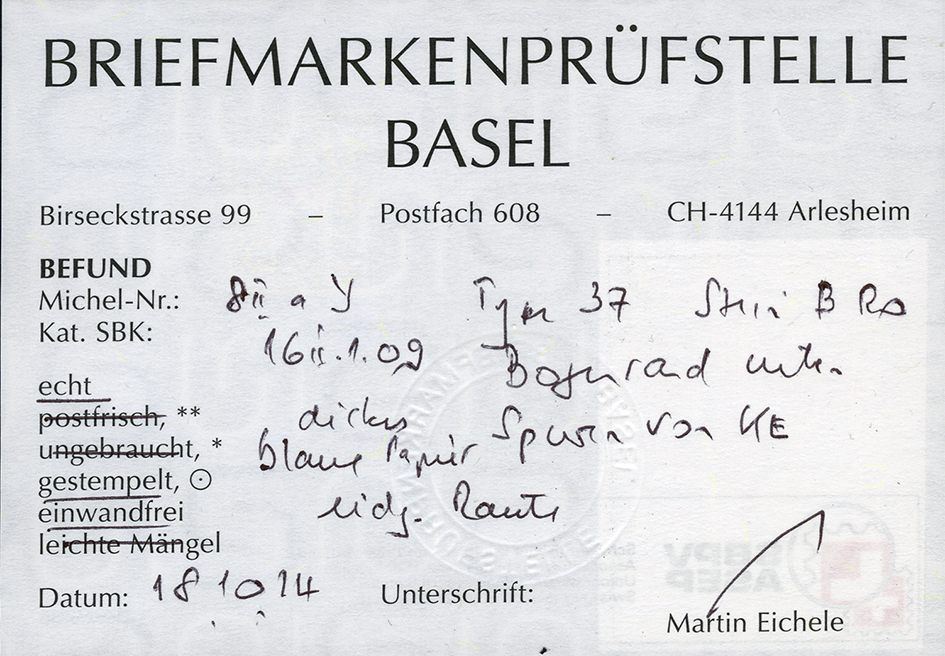 BRIEFMARKENPRÜFSTELLE
BASEL
Birseckstrasse 99 – Postfach 608 – CH-4144 Arlesheim
BEFUND
Michel-Nr.: 8II a y Type 37 Stein B RO
Kat. SBK: 16II.1.09 Bogenrand unten
echt
postfrisch, ** dickes Spuren von KE
ungebraucht, * blaues Papier
gestempelt, ⊙
einwandfrei eidg. Raute
leichte Mängel
Datum: 18 10 14 Unterschrift:
Martin Eichele